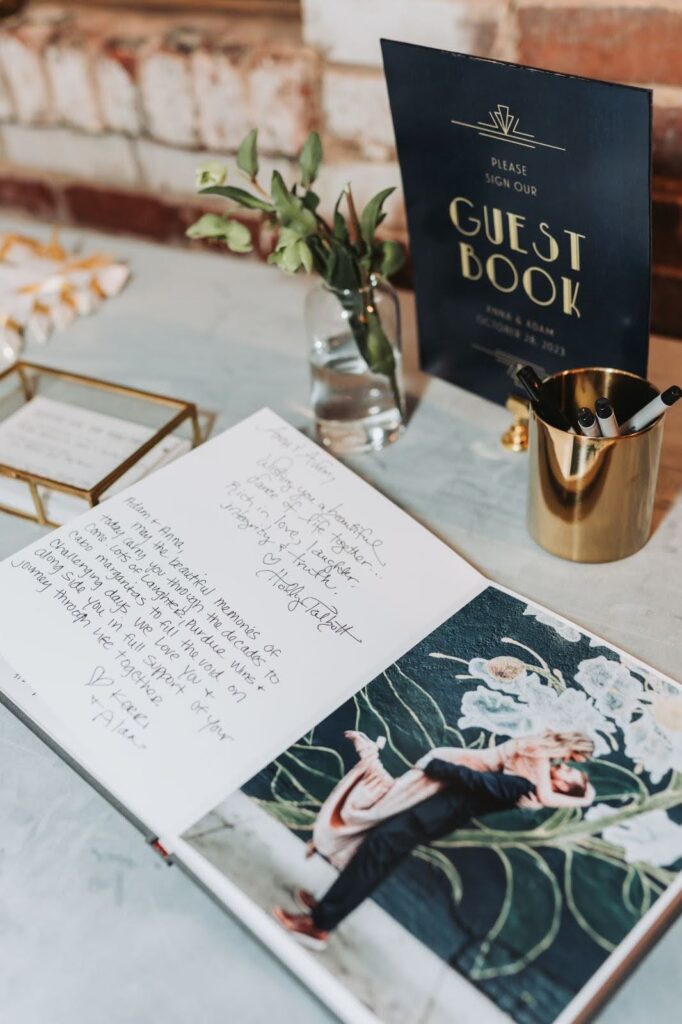 PLEASE
SIGN OUR
GUEST
BOOK
ANNA & ADAM
OCTOBER 28, 2023
Wishing you a beautiful
dance of life together...
Rich in love, laughter,
integrity & truth.
♡ Holly Talbott
Adam + Anna,
may the beautiful memories of
today carry you through the decades to
come. Lots of laughter, Purdue wins +
cabo margaritas to fill the void on
challenging days. We love you +
along side you in full support of your
journey through life together
♡ Kerri
+ Alan